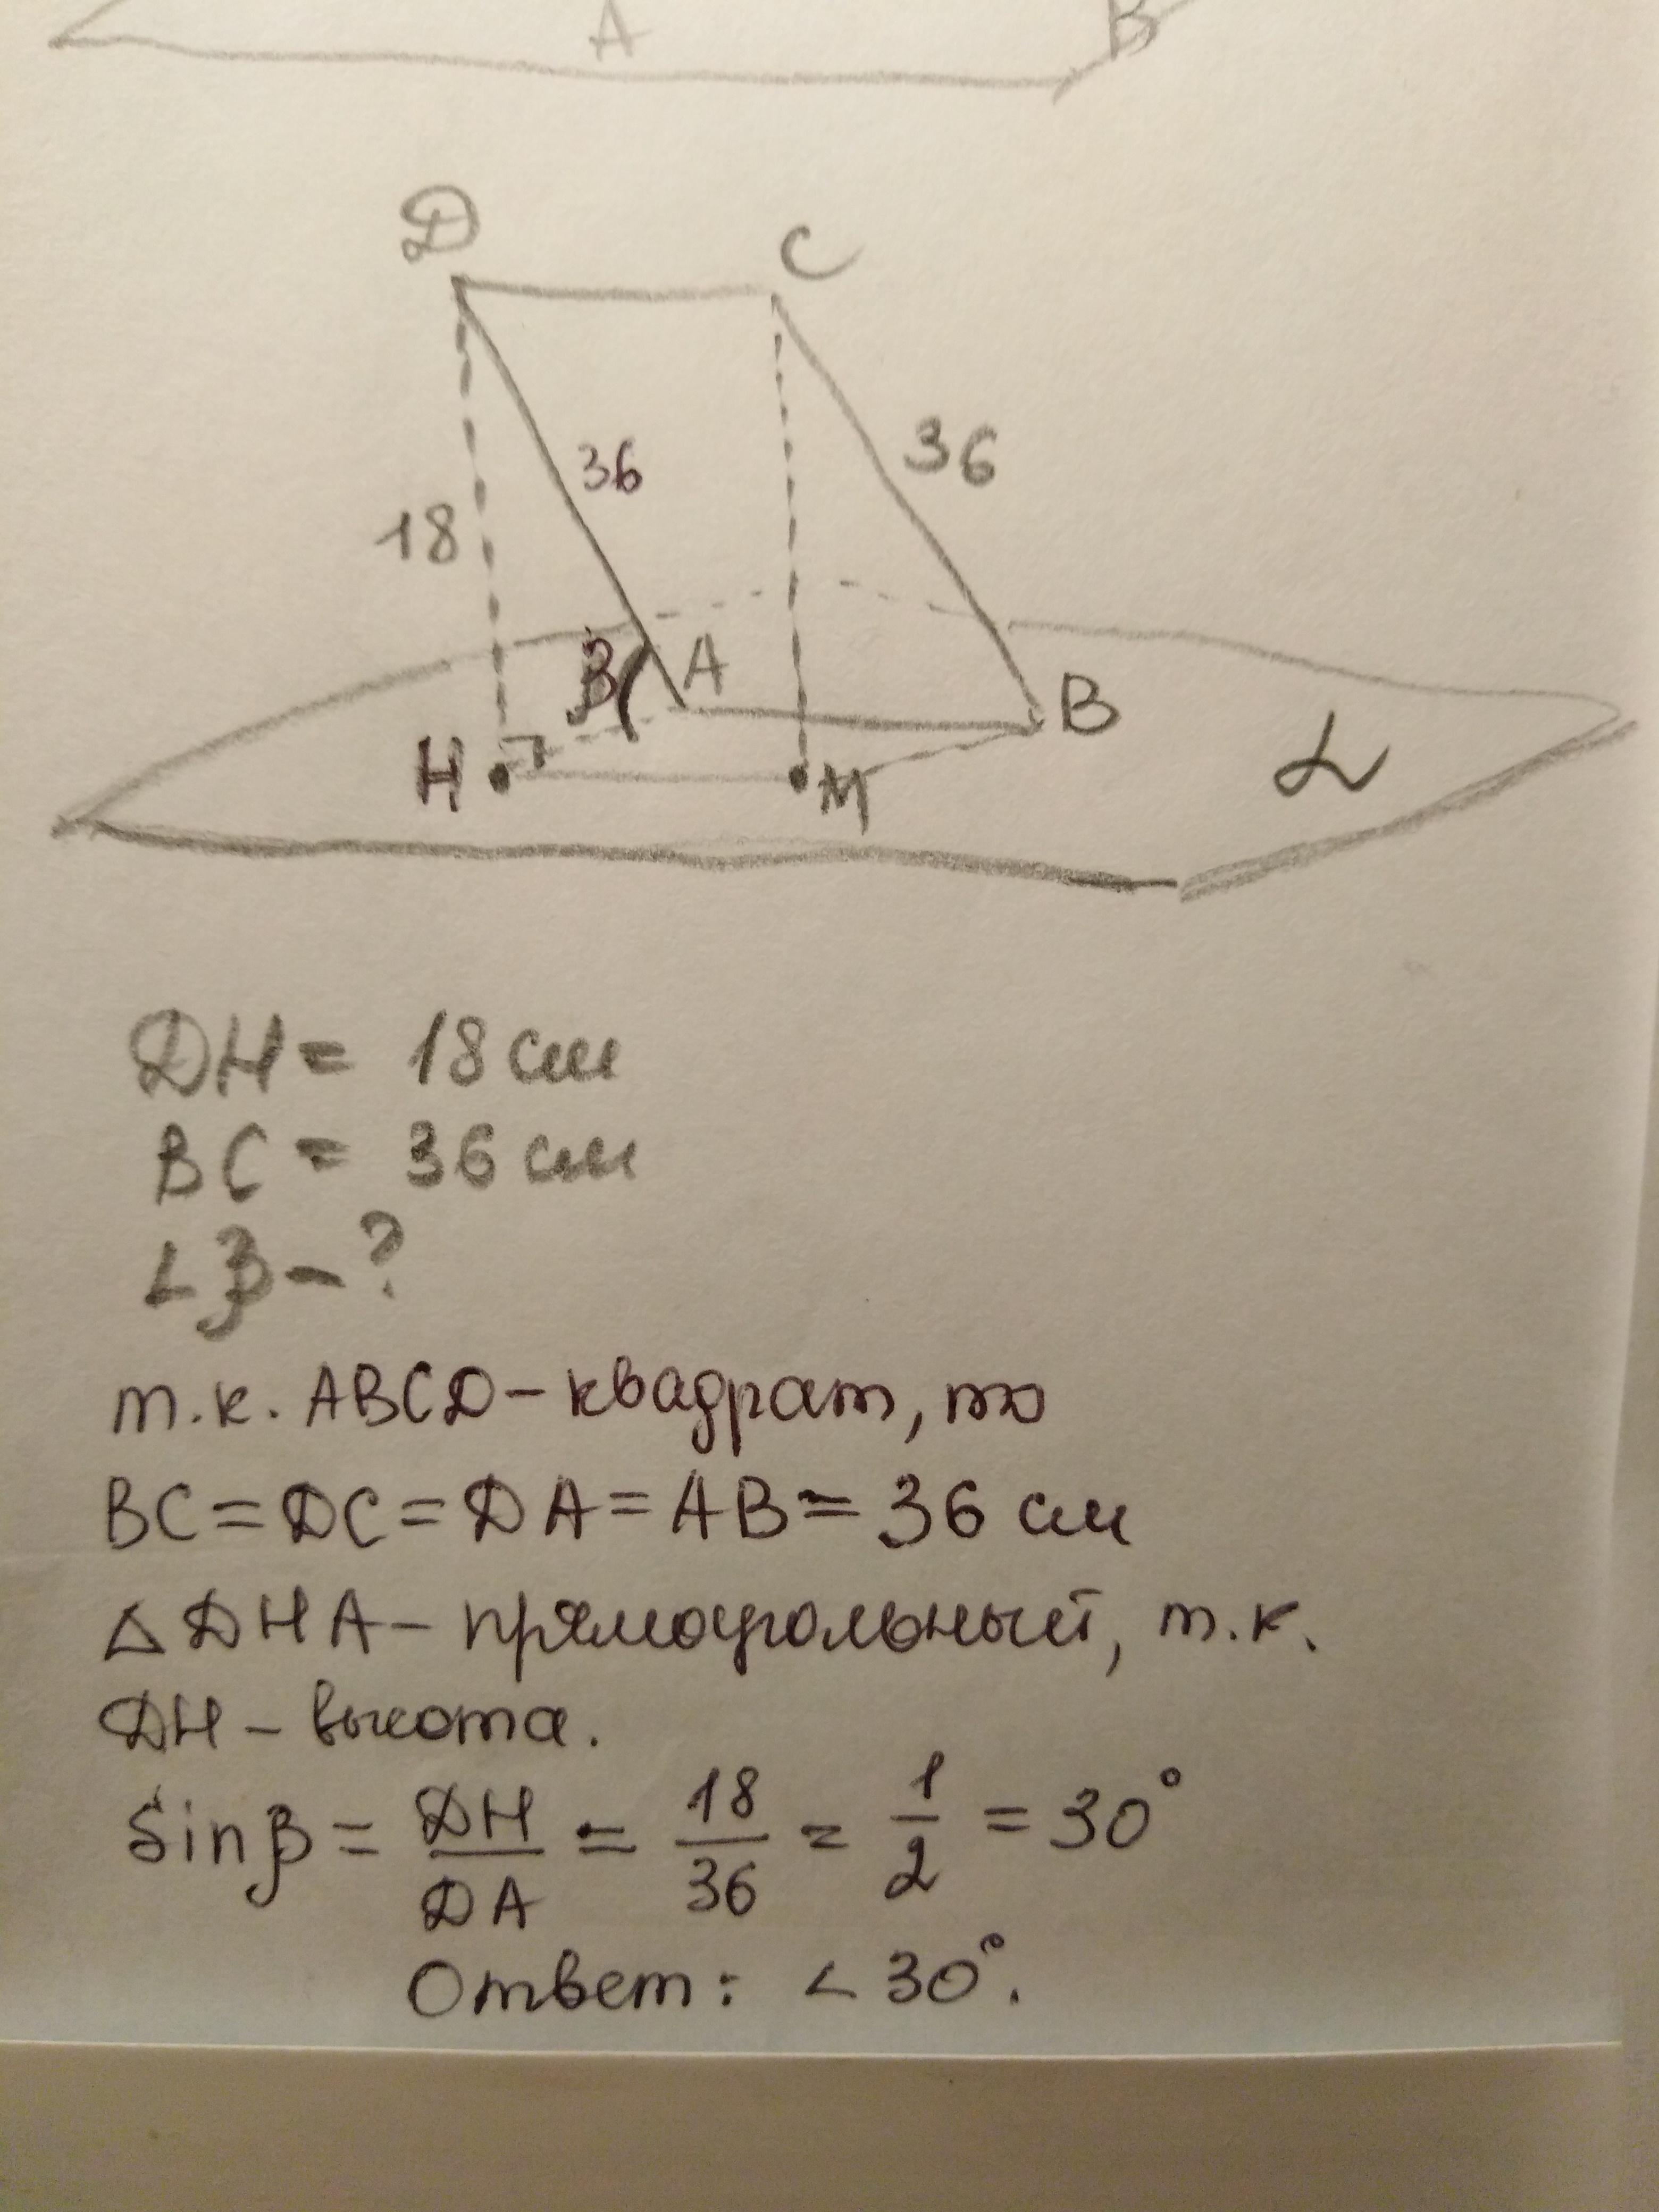 A B
D C
36 36
18
β A B
H M α
DH = 18 см
BC = 36 см
∠β - ?
т.к. ABCD - квадрат, то
BC = DC = DA = AB = 36 см
△ DHA - прямоугольный, т.к.
DH - высота.
Sinβ = DH/DA = 18/36 = 1/2 = 30°
Ответ: ∠30°.